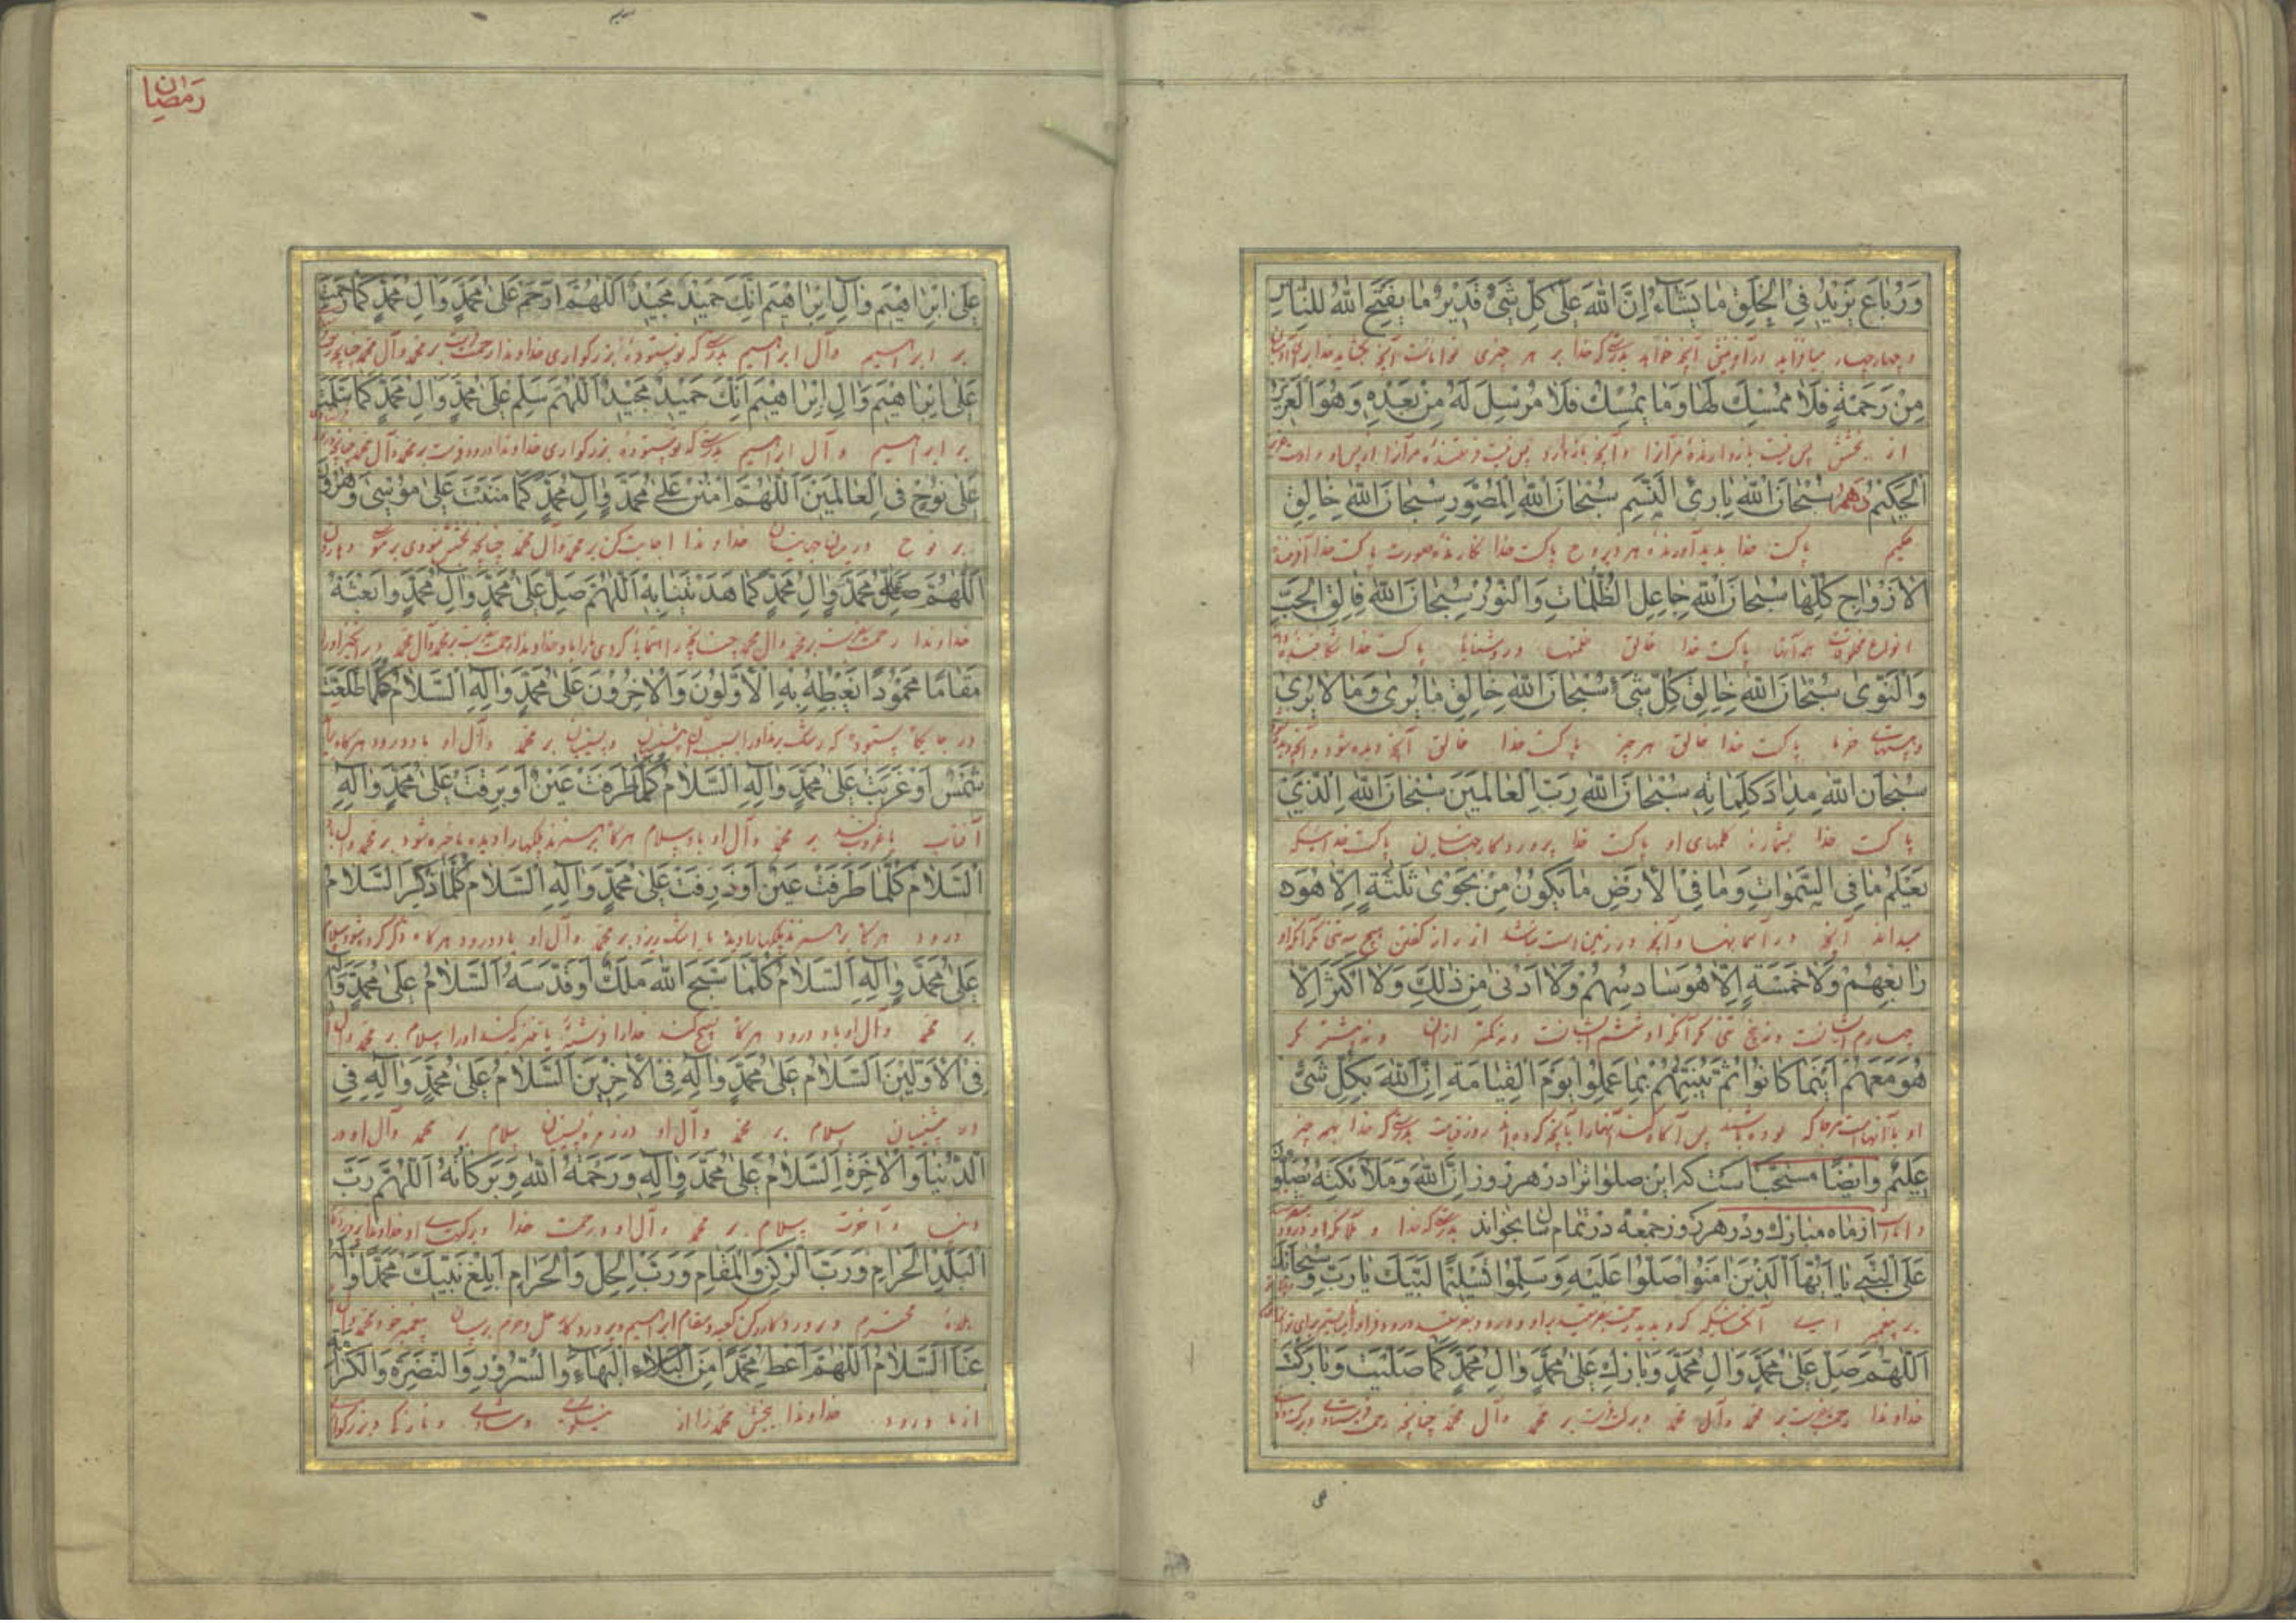 وَرُبَاعَ يَزِيدُ فِي الْخَلْقِ مَا يَشَاءُ إِنَّ اللهَ عَلَىٰ كُلِّ شَيْءٍ قَدِيرٌ مَا يَفْتَحِ اللهُ لِلنَّاسِ
و چهار چهار میافزاید در آفرینش آنچه خواهد بدرستی که خدا بر هر چیزی تواناست آنچه بگشاید خدا برای
مِنْ رَحْمَةٍ فَلَا مُمْسِكَ لَهَا وَمَا يُمْسِكْ فَلَا مُرْسِلَ لَهُ مِنْ بَعْدِهِ وَهُوَ الْعَزِيزُ
از بخشش پس نیست بازدارندهٔ مر آنرا و آنچه بازدارد پس نیست فرستندهٔ مر آنرا از پس او و اوست عزیز
الْحَكِيمُ دهم سُبْحَانَ اللهِ بَارِئِ النَّسَمِ سُبْحَانَ اللهِ الْمُصَوِّرِ سُبْحَانَ اللهِ خَالِقِ
حکیم پاکست خدا پدید آورندهٔ هر ذیروح پاکست خدا نگارندهٔ صورت پاکست خدا آفرینندهٔ
الْأَزْوَاجِ كُلِّهَا سُبْحَانَ اللهِ جَاعِلِ الظُّلُمَاتِ وَالنُّورِ سُبْحَانَ اللهِ فَالِقِ الْحَبِّ
انواع مخلوقات همه آنها پاکست خدا خالق ظلمتها و روشنایها پاکست خدا شکافندهٔ
وَالنَّوَىٰ سُبْحَانَ اللهِ خَالِقِ كُلِّ شَيْءٍ سُبْحَانَ اللهِ خَالِقِ مَا يُرَىٰ وَمَا لَا يُرَىٰ
خرما پاکست خدا خالق هر چیز پاکست خدا خالق آنچه دیده شود و آنچه دیده
سُبْحَانَ اللهِ مِدَادَ كَلِمَاتِهِ سُبْحَانَ اللهِ رَبِّ الْعَالَمِينَ سُبْحَانَ اللهِ الَّذِي
پاکست خدا بشمارهٔ کلمهای او پاکست خدا پروردگار جهانیان پاکست خدائیکه
يَعْلَمُ مَا فِي السَّمٰوَاتِ وَمَا فِي الْأَرْضِ مَا يَكُونُ مِنْ نَجْوَىٰ ثَلٰثَةٍ إِلَّا هُوَ
میداند آنچه در آسمانها و آنچه در زمین است نباشد از راز گفتن هیچ سه تنی مگر آنکه او
رَابِعُهُمْ وَلَا خَمْسَةٍ إِلَّا هُوَ سَادِسُهُمْ وَلَا أَدْنَىٰ مِنْ ذٰلِكَ وَلَا أَكْثَرَ إِلَّا
چهارم ایشانست و نه پنج تنی مگر آنکه او ششم ایشانست و نه کمتر از آن و نه بیشتر مگر
هُوَ مَعَهُمْ أَيْنَمَا كَانُوا ثُمَّ يُنَبِّئُهُمْ بِمَا عَمِلُوا يَوْمَ الْقِيَامَةِ إِنَّ اللهَ بِكُلِّ شَيْءٍ
او با آنهاست هر جا که بوده باشند پس آگاه کند آنها را بآنچه کرده‌اند روز قیامت بدرستی که خدا بهمه چیز
عَلِيمٌ وايضًا مستحبّ است كه اين صلوات را در هر روز إِنَّ اللهَ وَمَلَائِكَتَهُ يُصَلُّونَ
از ماه مبارك و در هر روز جمعه در تمام سال بخواند بدرستی که خدا و ملائکه او
عَلَى النَّبِيِّ يَا أَيُّهَا الَّذِينَ آمَنُوا صَلُّوا عَلَيْهِ وَسَلِّمُوا تَسْلِيمًا لَبَّيْكَ يَا رَبِّ وَسُبْحَانَكَ
بر پیغمبر ای آنکسانیکه گرویدید رحمت بفرستید بر او و درود بفرستید
اللّٰهُمَّ صَلِّ عَلَىٰ مُحَمَّدٍ وَآلِ مُحَمَّدٍ وَبَارِكْ عَلَىٰ مُحَمَّدٍ وَآلِ مُحَمَّدٍ كَمَا صَلَّيْتَ وَبَارَكْتَ
خداوندا رحمت بفرست بر محمد و آل محمد و برکت فرست بر محمد و آل محمد چنانچه رحمت فرستادی و برکت
رمضان
عَلَىٰ إِبْرَاهِيمَ وَآلِ إِبْرَاهِيمَ إِنَّكَ حَمِيدٌ مَجِيدٌ اللّٰهُمَّ ارْحَمْ عَلَىٰ مُحَمَّدٍ وَآلِ مُحَمَّدٍ كَمَا رَحِمْتَ
بر ابراهیم و آل ابراهیم بدرستی که تو ستودهٔ بزرگواری خداوندا رحمت بر محمد و آل محمد چنانچه
عَلَىٰ إِبْرَاهِيمَ وَآلِ إِبْرَاهِيمَ إِنَّكَ حَمِيدٌ مَجِيدٌ اللّٰهُمَّ سَلِّمْ عَلَىٰ مُحَمَّدٍ وَآلِ مُحَمَّدٍ كَمَا سَلَّمْتَ
بر ابراهیم و آل ابراهیم بدرستی که تو ستودهٔ بزرگواری خداوندا درود فرست بر محمد و آل محمد چنانچه
عَلَىٰ نُوحٍ فِي الْعَالَمِينَ اللّٰهُمَّ امْنُنْ عَلَىٰ مُحَمَّدٍ وَآلِ مُحَمَّدٍ كَمَا مَنَنْتَ عَلَىٰ مُوسَىٰ وَهٰرُونَ
بر نوح در میان جهانیان خداوندا کن بر محمد و آل محمد چنانچه بخشش نمودی بر موسی و هارون
اللّٰهُمَّ صَلِّ عَلَىٰ مُحَمَّدٍ وَآلِ مُحَمَّدٍ كَمَا هَدَيْتَنَا بِهِ اللّٰهُمَّ صَلِّ عَلَىٰ مُحَمَّدٍ وَآلِ مُحَمَّدٍ وَابْعَثْهُ
خداوندا رحمت بفرست بر محمد و آل محمد چنانچه راهنمایی کردی ما را باو خداوندا رحمت بفرست بر محمد و آل محمد و برانگیز او را
مَقَامًا مَحْمُودًا يَغْبِطُهُ بِهِ الْأَوَّلُونَ وَالْآخِرُونَ عَلَىٰ مُحَمَّدٍ وَآلِهِ السَّلَامُ كُلَّمَا طَلَعَتْ
در جایگاه ستوده که رشک برند او را بسبب آن پیشینیان و پسینیان بر محمد و آل او باد درود هرگاه
شَمْسٌ أَوْ غَرَبَتْ عَلَىٰ مُحَمَّدٍ وَآلِهِ السَّلَامُ كُلَّمَا طَرَفَتْ عَيْنٌ أَوْ بَرِقَتْ عَلَىٰ مُحَمَّدٍ وَآلِهِ
آفتاب یا غروب کند بر محمد و آل او باد سلام هرگاه برهم زند پلکها را دیده یا خیره شود بر محمد و آل
السَّلَامُ كُلَّمَا طَرَفَتْ عَيْنٌ أَوْ ذَرَفَتْ عَلَىٰ مُحَمَّدٍ وَآلِهِ السَّلَامُ كُلَّمَا ذُكِرَ السَّلَامُ
درود هرگاه برهم زند پلکها را دیده یا اشک ریزد بر محمد و آل او باد درود هرگاه ذکر کرده شود سلام
عَلَىٰ مُحَمَّدٍ وَآلِهِ السَّلَامُ كُلَّمَا سَبَّحَ اللهَ مَلَكٌ أَوْ قَدَّسَهُ السَّلَامُ عَلَىٰ مُحَمَّدٍ وَآلِهِ
بر محمد و آل او باد درود هرگاه تسبیح کند خدا را فرشتهٔ یا تنزیه کند او را سلام بر محمد و آل
فِي الْأَوَّلِينَ السَّلَامُ عَلَىٰ مُحَمَّدٍ وَآلِهِ فِي الْآخِرِينَ السَّلَامُ عَلَىٰ مُحَمَّدٍ وَآلِهِ فِي
در پیشینیان سلام بر محمد و آل او در زمرهٔ پسینیان سلام بر محمد و آل او در
الدُّنْيَا وَالْآخِرَةِ السَّلَامُ عَلَىٰ مُحَمَّدٍ وَآلِهِ وَرَحْمَةُ اللهِ وَبَرَكَاتُهُ اللّٰهُمَّ رَبَّ
دنیا و آخرت سلام بر محمد و آل او و رحمت خدا و برکتهای او خداوندا
الْبَلَدِ الْحَرَامِ وَرَبَّ الرُّكْنِ وَالْمَقَامِ وَرَبَّ الْحِلِّ وَالْحَرَامِ أَبْلِغْ نَبِيَّكَ مُحَمَّدًا وَآلَهُ
بلدهٔ محترم و پروردگار رکن کعبه و مقام ابراهیم و پروردگار حل و حرم برسان پیغمبر خود محمد و آل
عَنَّا السَّلَامُ اللّٰهُمَّ أَعْطِ مُحَمَّدًا مِنَ الْبَهَاءِ وَالسُّرُورِ وَالنَّضْرَةِ وَالْكَرَامَةِ
از ما درود خداوندا ببخش محمد را از نیکوئی و شادی و تازگی و بزرگواری